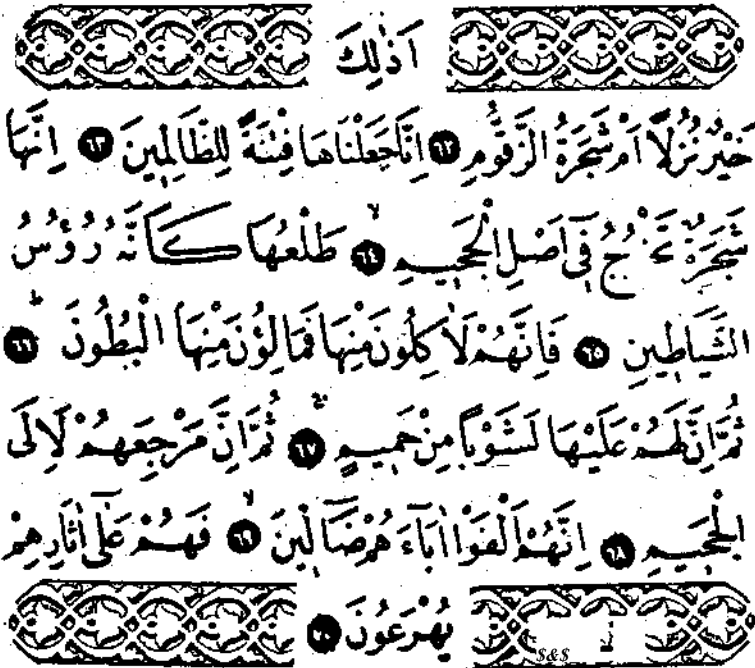 اَذٰلِكَ
خَيْرٌ نُزُلًا اَمْ شَجَرَةُ الزَّقُّومِ ﴿٦٢﴾ اِنَّا جَعَلْنَاهَا فِتْنَةً لِلظَّالِمِينَ ﴿٦٣﴾ اِنَّهَا
شَجَرَةٌ تَخْرُجُ فِٓي اَصْلِ الْجَحِيمِ ﴿٦٤﴾ طَلْعُهَا كَاَنَّهُ رُؤُسُ
الشَّيَاطِينِ ﴿٦٥﴾ فَاِنَّهُمْ لَاٰكِلُونَ مِنْهَا فَمَالِؤُنَ مِنْهَا الْبُطُونَ ﴿٦٦﴾
ثُمَّ اِنَّ لَهُمْ عَلَيْهَا لَشَوْبًا مِنْ حَمِيمٍ ﴿٦٧﴾ ثُمَّ اِنَّ مَرْجِعَهُمْ لَاِلَى
الْجَحِيمِ ﴿٦٨﴾ اِنَّهُمْ اَلْفَوْا اٰبَٓاءَهُمْ ضَٓالِّينَ ﴿٦٩﴾ فَهُمْ عَلٰٓى اٰثَارِهِمْ
يُهْرَعُونَ ﴿٧٠﴾
$&$